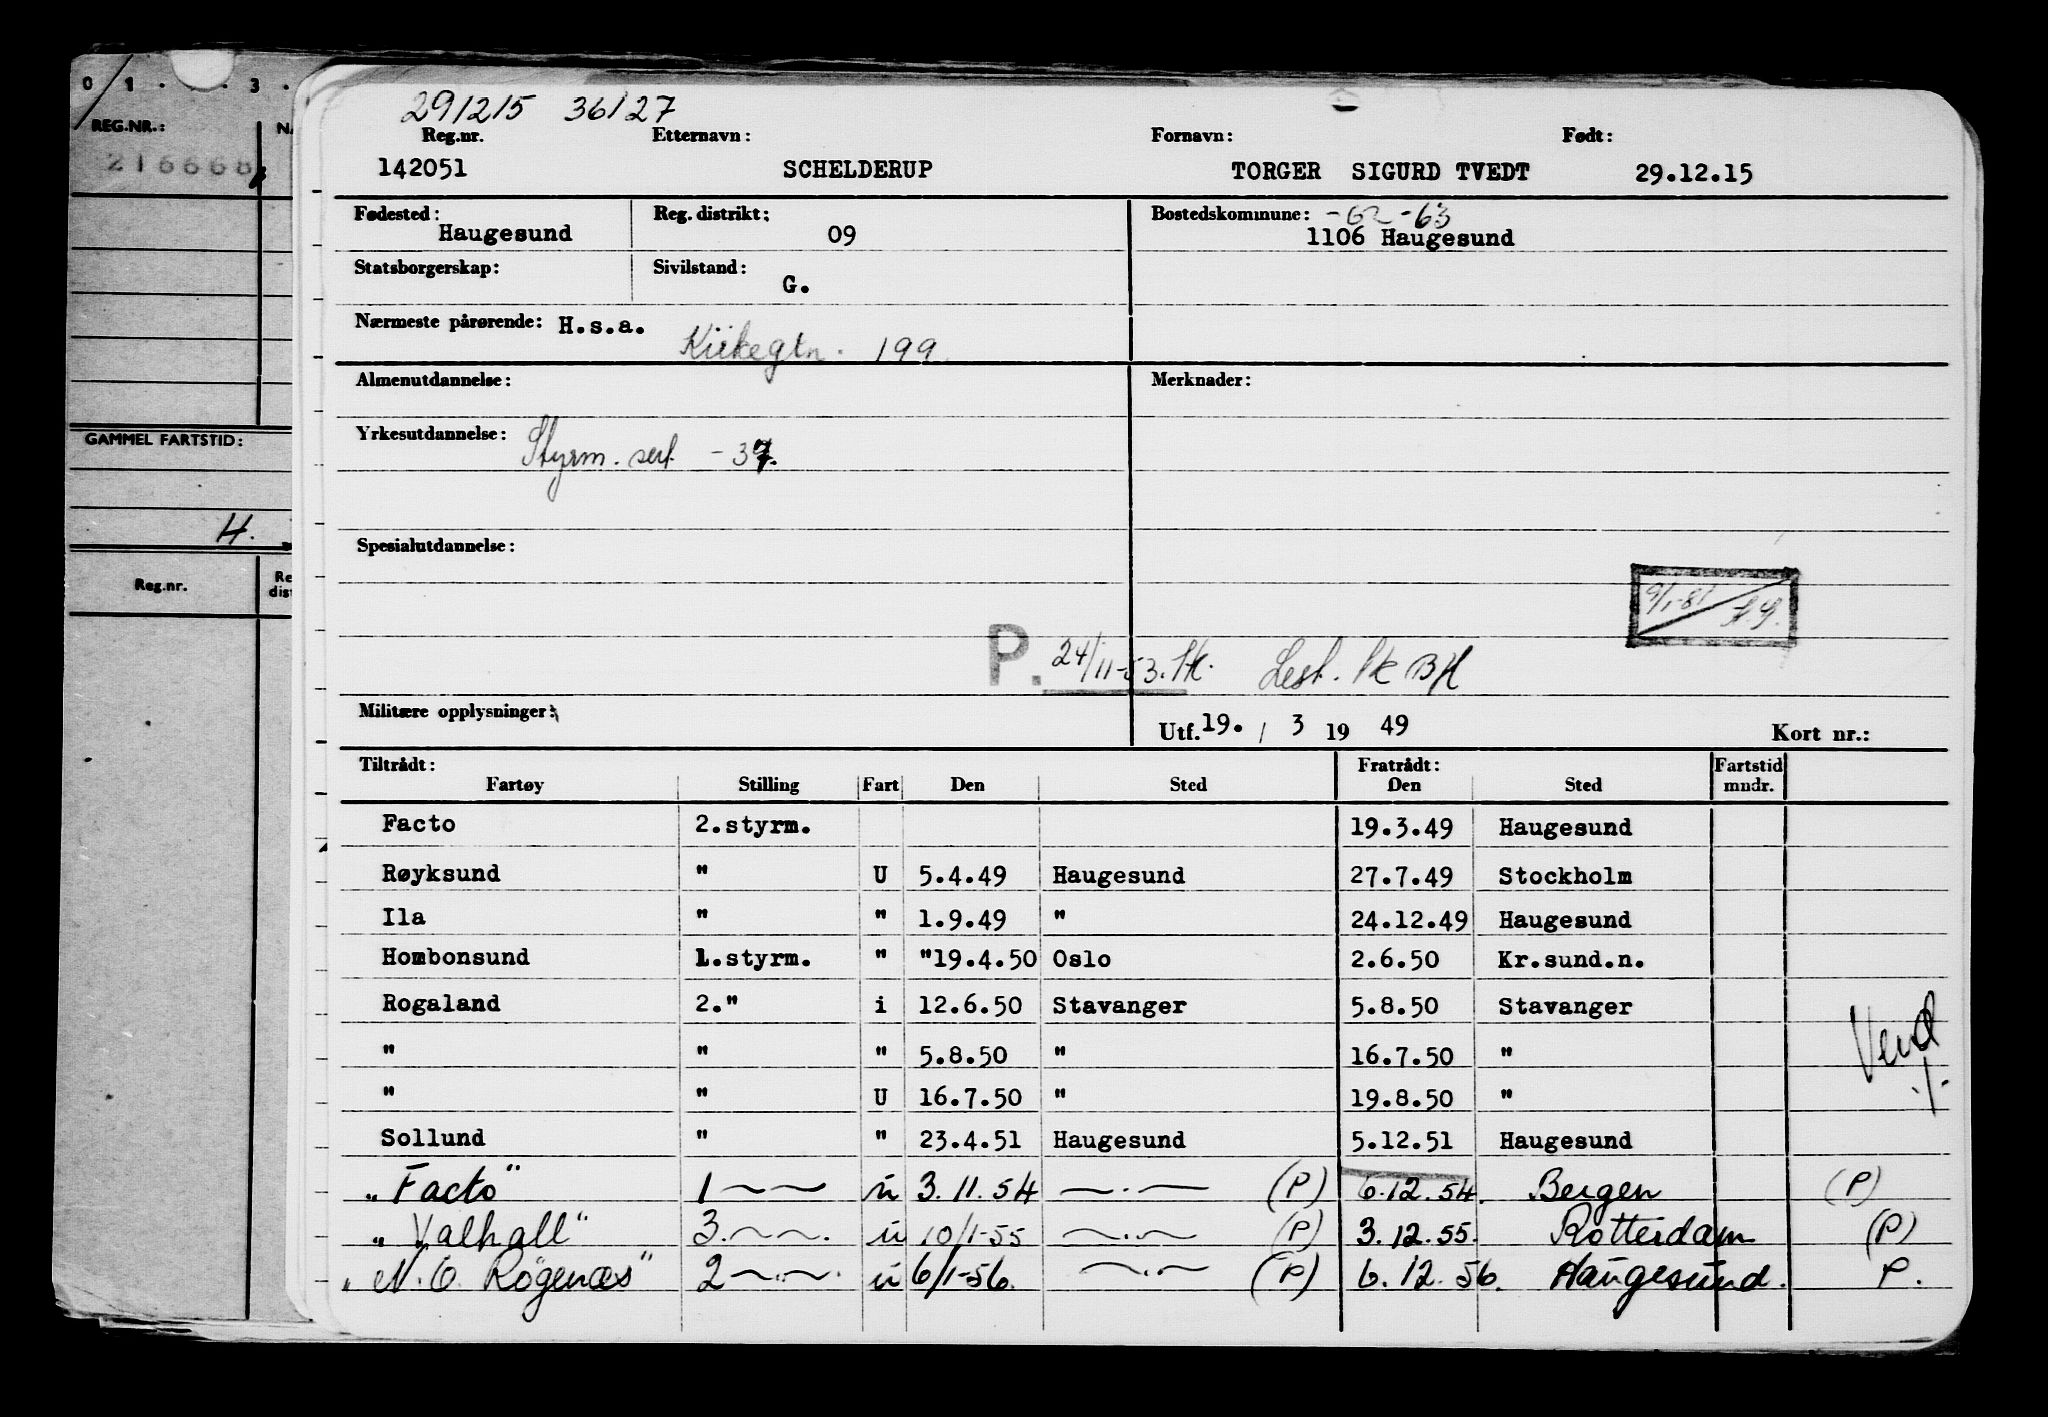 0 1 . . 3 .
REG.NR.:
216668
GAMMEL FARTSTID:
H.
Reg.nr.
291215 36127
Reg.nr. Etternavn: Fornavn: Født:
142051 SCHELDERUP TORGER SIGURD TVEDT 29.12.15
Fødested: Reg. distrikt: Bostedskommune: -62 -63
Haugesund 09 1106 Haugesund
Statsborgerskap: Sivilstand:
G.
Nærmeste pårørende: H.s.a.
Kirkegtn. 199
Almenutdannelse: Merknader:
Yrkesutdannelse: Styrm. sert. -37.
Spesialutdannelse:
9/1-81
P. 24/11-53. BH
Militære opplysninger:
Utf. 19. / 3 19 49 Kort nr.:
Tiltrådt: Fratrådt: Fartstid
Fartøy Stilling Fart Den Sted Den Sted mndr.
Facto 2.styrm. 19.3.49 Haugesund
Røyksund " U 5.4.49 Haugesund 27.7.49 Stockholm
Ila " " 1.9.49 " 24.12.49 Haugesund
Hombonsund 1.styrm. " "19.4.50 Oslo 2.6.50 Kr.sund.n.
Rogaland 2." i 12.6.50 Stavanger 5.8.50 Stavanger
" " " 5.8.50 " 16.7.50 "
" " U 16.7.50 " 19.8.50 "
Vend ./-
Sollund " " 23.4.51 Haugesund 5.12.51 Haugesund
"Facto" 1 —~— u 3.11.54 —.— (P) 6.12.54. Bergen (P)
"Valhall" 3.—.—. u 10/1-55 —.— (P) 3.12.55. Rotterdam (P)
"N.O. Rögenæs" 2 —.—. u 6/1-56. —.— (P) 6.12.56. Haugesund. P.